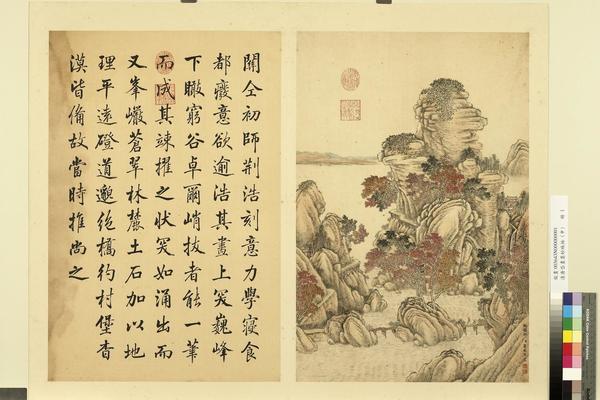 關仝初師荊浩刻意力學寢食
都癈意欲逾浩其畫上突巍峰
下瞰窮谷卓爾峭拔者能一筆
而成其竦擢之狀突如涌出而
又峯巖蒼翠林麓土石加以地
理平遠磴道邈絶橋彴村堡杳
漠皆備故當時推尚之